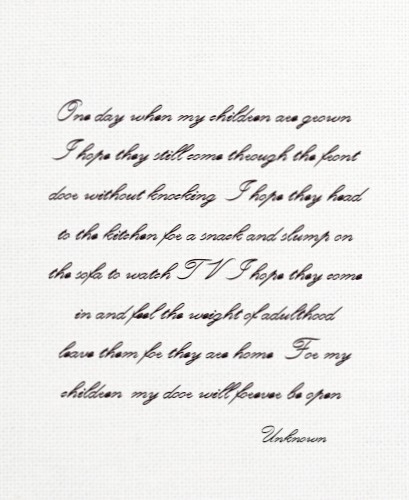 One day when my children are grown
I hope they still come through the front
door without knocking I hope they head
to the kitchen for a snack and slump on
the sofa to watch TV I hope they come
in and feel the weight of adulthood
leave them for they are home For my
children my door will forever be open
Unknown